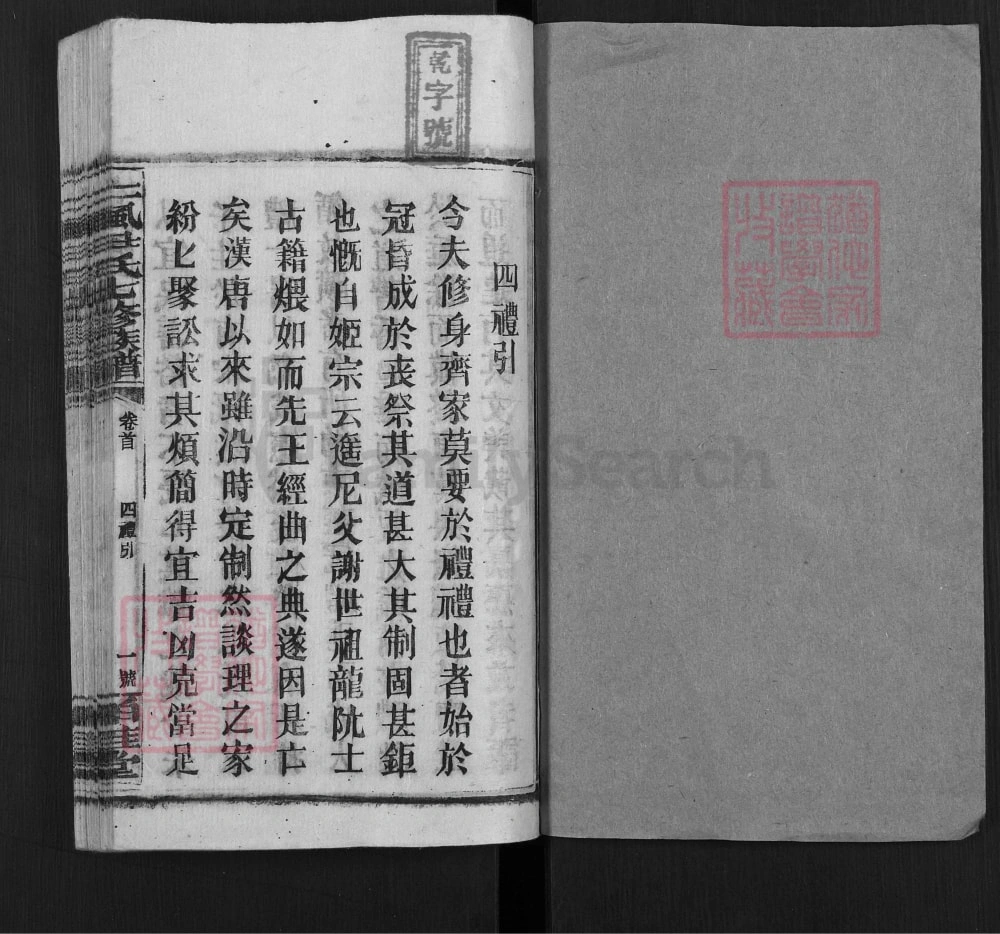 乾字號
四禮引
今夫修身齊家莫要於禮禮也者始於
冠昏成於丧祭其道甚大其制固甚鉅
也慨自姬宗云逝尼父謝世祖龍阬士
古籍煨如而先王經曲之典遂因是亡
矣漢唐以來雖沿時定制然談理之家
紛匕聚訟求其煩簡得宜吉凶克當足
氏七修族譜
卷首
四禮引
一號
堂
FamilySearch